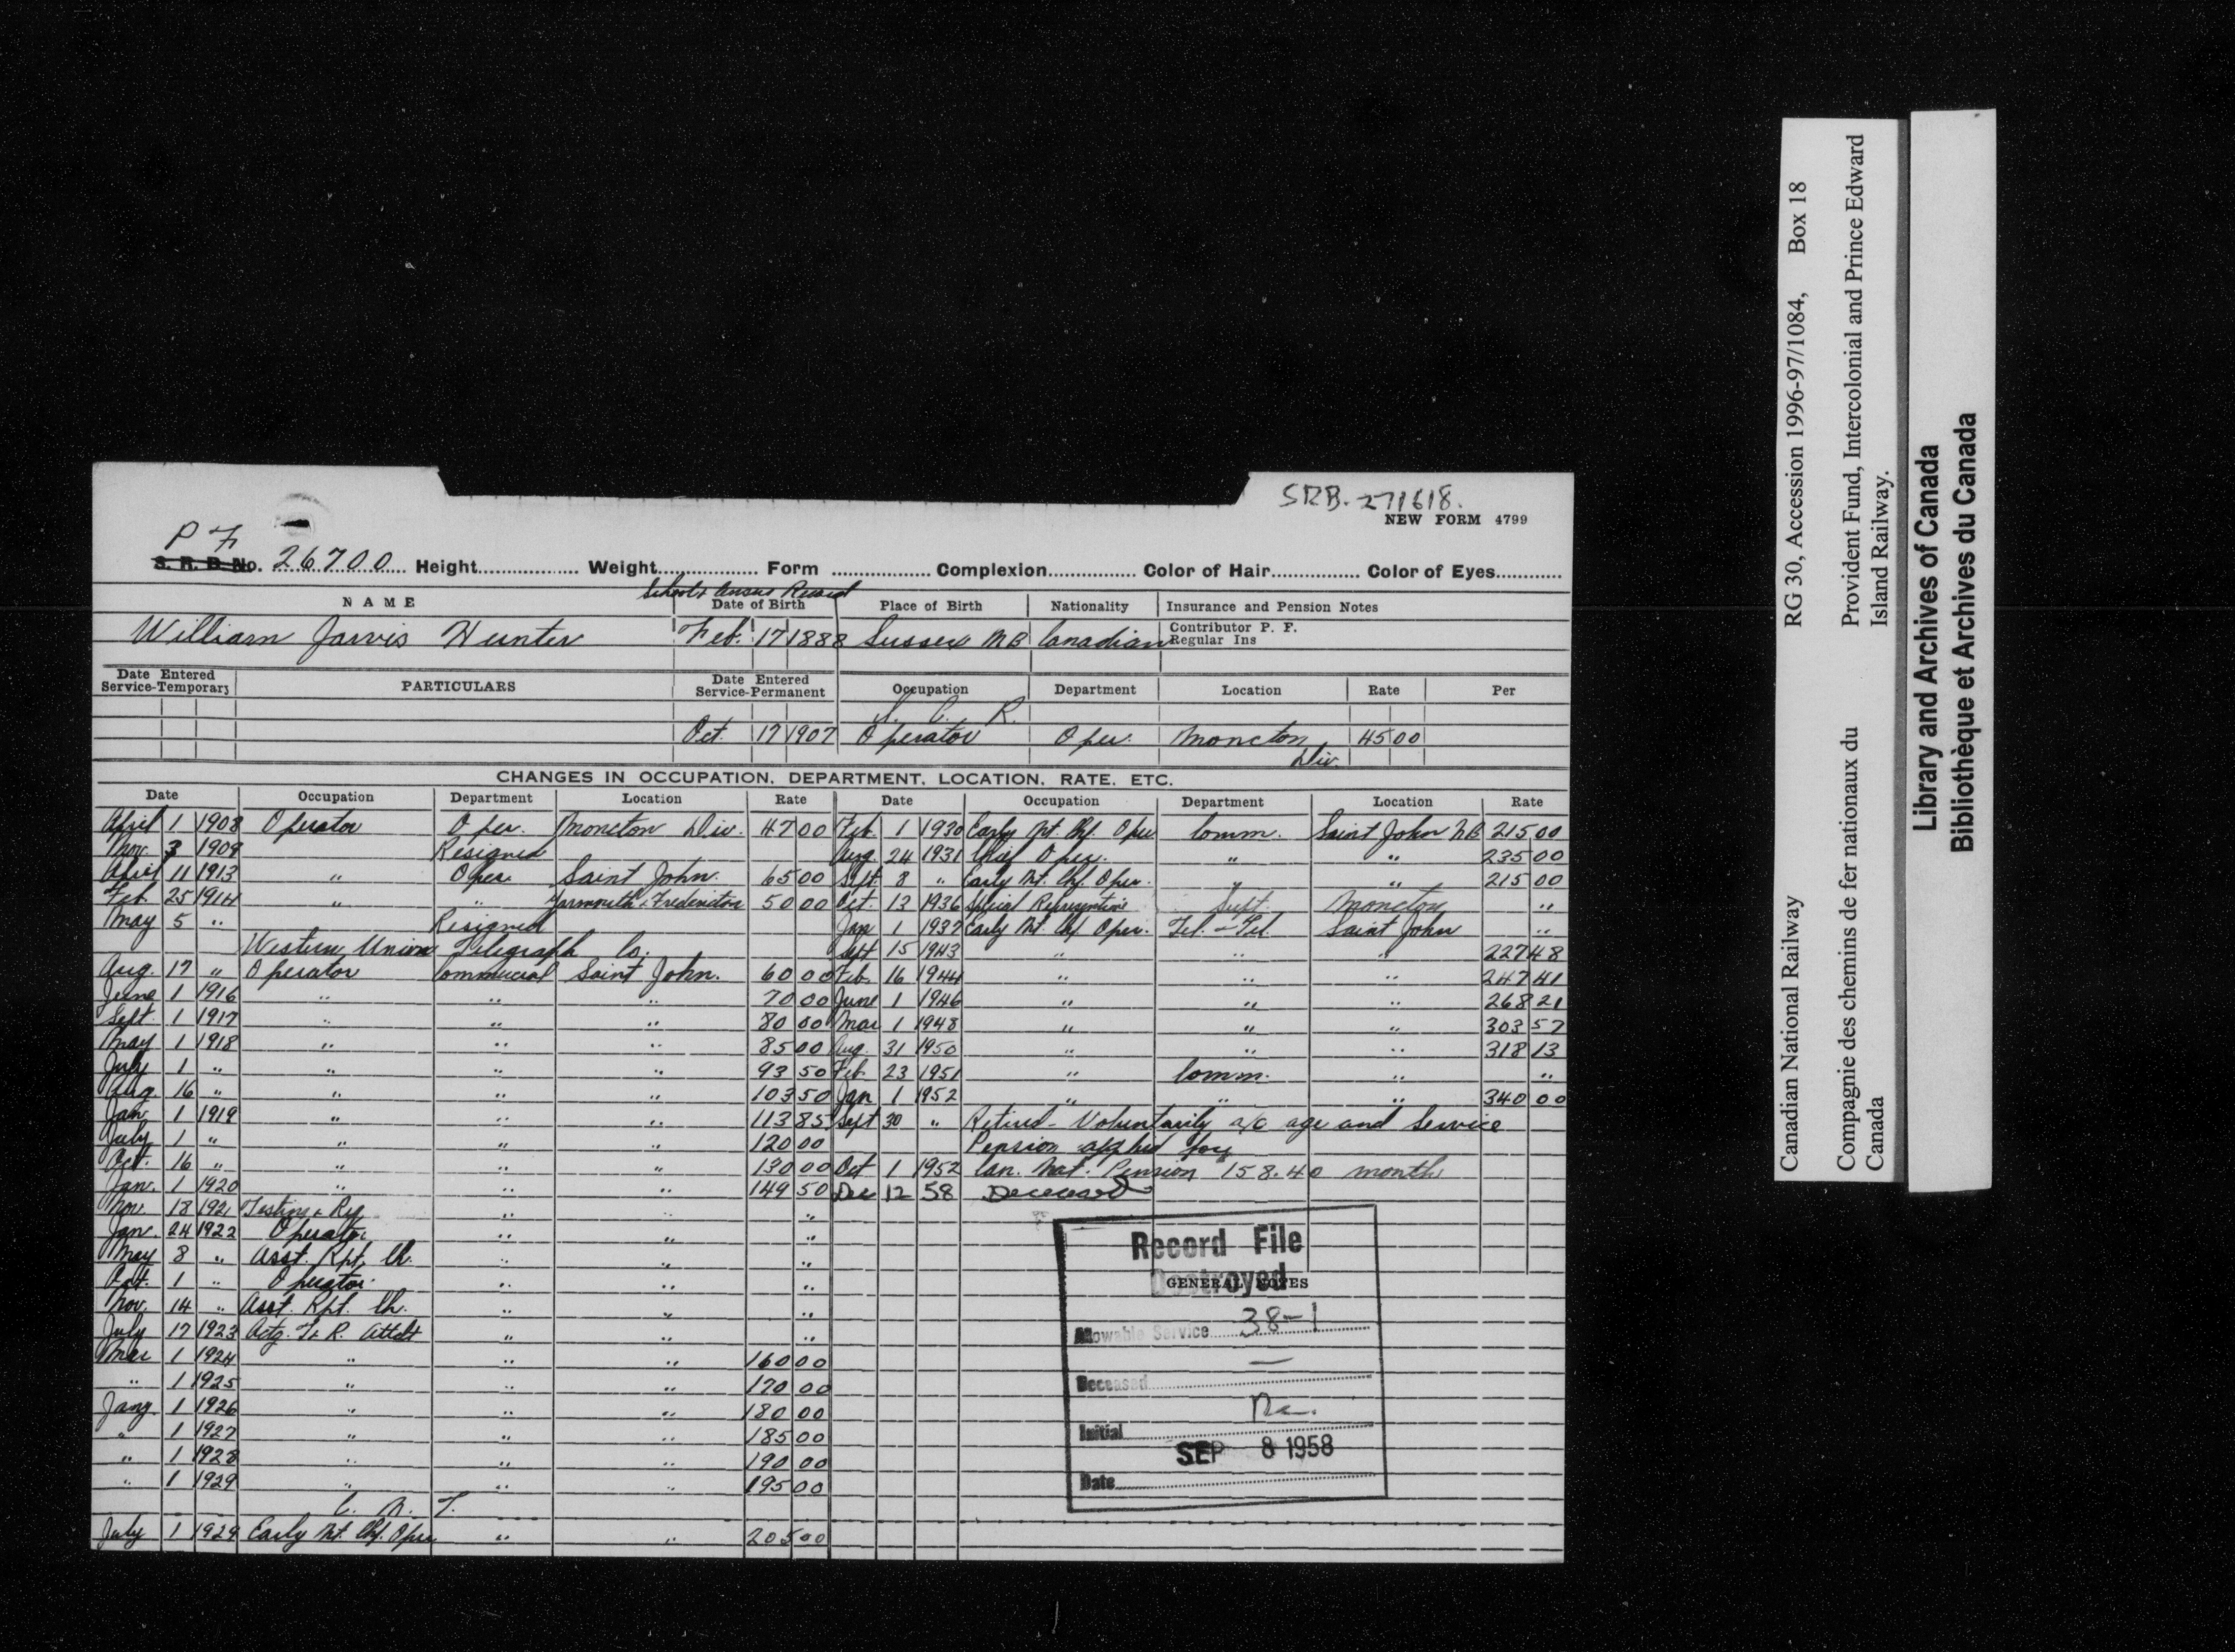 SRB. 271618.
NEW FORM 4799
P F
S. R. B. No. 26700 Height Weight Form Complexion Color of Hair Color of Eyes
School & Census Record
NAME Date of Birth Place of Birth Nationality Insurance and Pension Notes
William Jarvis Hunter Feb. 17 1888 Sussex NB Canadian Contributor P. F.
Regular Ins
Date Entered Service-Temporary PARTICULARS Date Entered Service-Permanent Occupation Department Location Rate Per
C. R.
Oct. 17 1907 Operator Oper. Moncton 45 00
Div.
CHANGES IN OCCUPATION, DEPARTMENT, LOCATION, RATE, ETC.
Date Occupation Department Location Rate Date Occupation Department Location Rate
April 1 1908 Operator Oper. Moncton Div. 47 00 Feb. 1 1930 Early Nt. Chf. Oper Comm. Saint John NB 215 00
Nov. 3 1909 Resigned Aug 24 1931 Chief Oper. " " 235 00
April 11 1913 " Oper. Saint John. 65 00 Sept. 8 " Early Nt. Chf. Oper. " " 215 00
Feb. 25 1914 " " Yarmouth & Fredericton 50 00 Oct. 13 1936 Special Representative Supt. Moncton "
May 5 " Resigned Jan 1 1937 Early Nt. Chf. Oper. Tel. - Tel. Saint John "
Western Union Telegraph Co. Sept 15 1943 " " " 227 48
Aug. 17 " Operator Commercial Saint John. 60 00 Feb. 16 1944 " " " 247 41
June 1 1916 " " " 70 00 June 1 1946 " " " 268 21
Sept. 1 1917 " " " 80 00 Mar 1 1948 " " " 303 57
May 1 1918 " " " 85 00 Aug. 31 1950 " " " 318 13
July 1 " " " " 93 50 Feb. 23 1951 " Comm. " "
Aug. 16 " " " " 103 50 Jan 1 1952 " " " 340 00
Jan. 1 1919 " " " 113 85 Sept 30 " Retired - Voluntarily a/c age and Service
July 1 " " " " 120 00 Pension applied for
Oct. 16 " " " " 130 00 Oct 1 1952 Can. Nat. Pension 158.40 month
Jan. 1 1920 " " " 149 50 Dec 12 58 Deceased
Nov. 18 1921 Testing & Reg " " "
Jan. 24 1922 Operator " " "
May 8 " Asst. Rpt. Ch. " " "
Oct. 1 " Operator " " "
Nov. 14 " Asst. Rpt. Ch. " " "
July 17 1923 Actg. T & R. Attdt " " "
Mar 1 1924 " " " 160 00
" 1 1925 " " " 170 00
Jany. 1 1926 " " " 180 00
" 1 1927 " " " 185 00
" 1 1928 " " " 190 00
" 1 1929 " " " 195 00
C. N. T.
July 1 1929 Early Nt. Chf. Oper " " 205 00
Record File
Destroyed
GENERAL NOTES
Allowable Service 38-1
Deceased —
Initial
SEP 8 1958
Date
Canadian National Railway RG 30, Accession 1996-97/1084, Box 18
Compagnie des chemins de fer nationaux du Canada
Provident Fund, Intercolonial and Prince Edward Island Railway.
Library and Archives of Canada
Bibliothèque et Archives du Canada